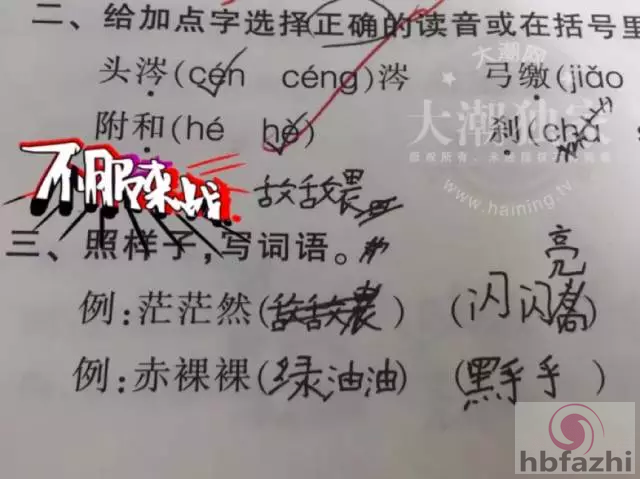 二、给加点字选择正确的读音或在括号里
大潮网
头涔(cén céng)涔 弓缴(jiǎo
大潮独家
附和(hé hè) 刹(chà
版权所有，未
www.haining.tv
不服来战
三、照样子，写词语。
亮
例:茫茫然( ) (闪闪
例:赤裸裸(绿油油) (黑乎乎)
hbfazhi